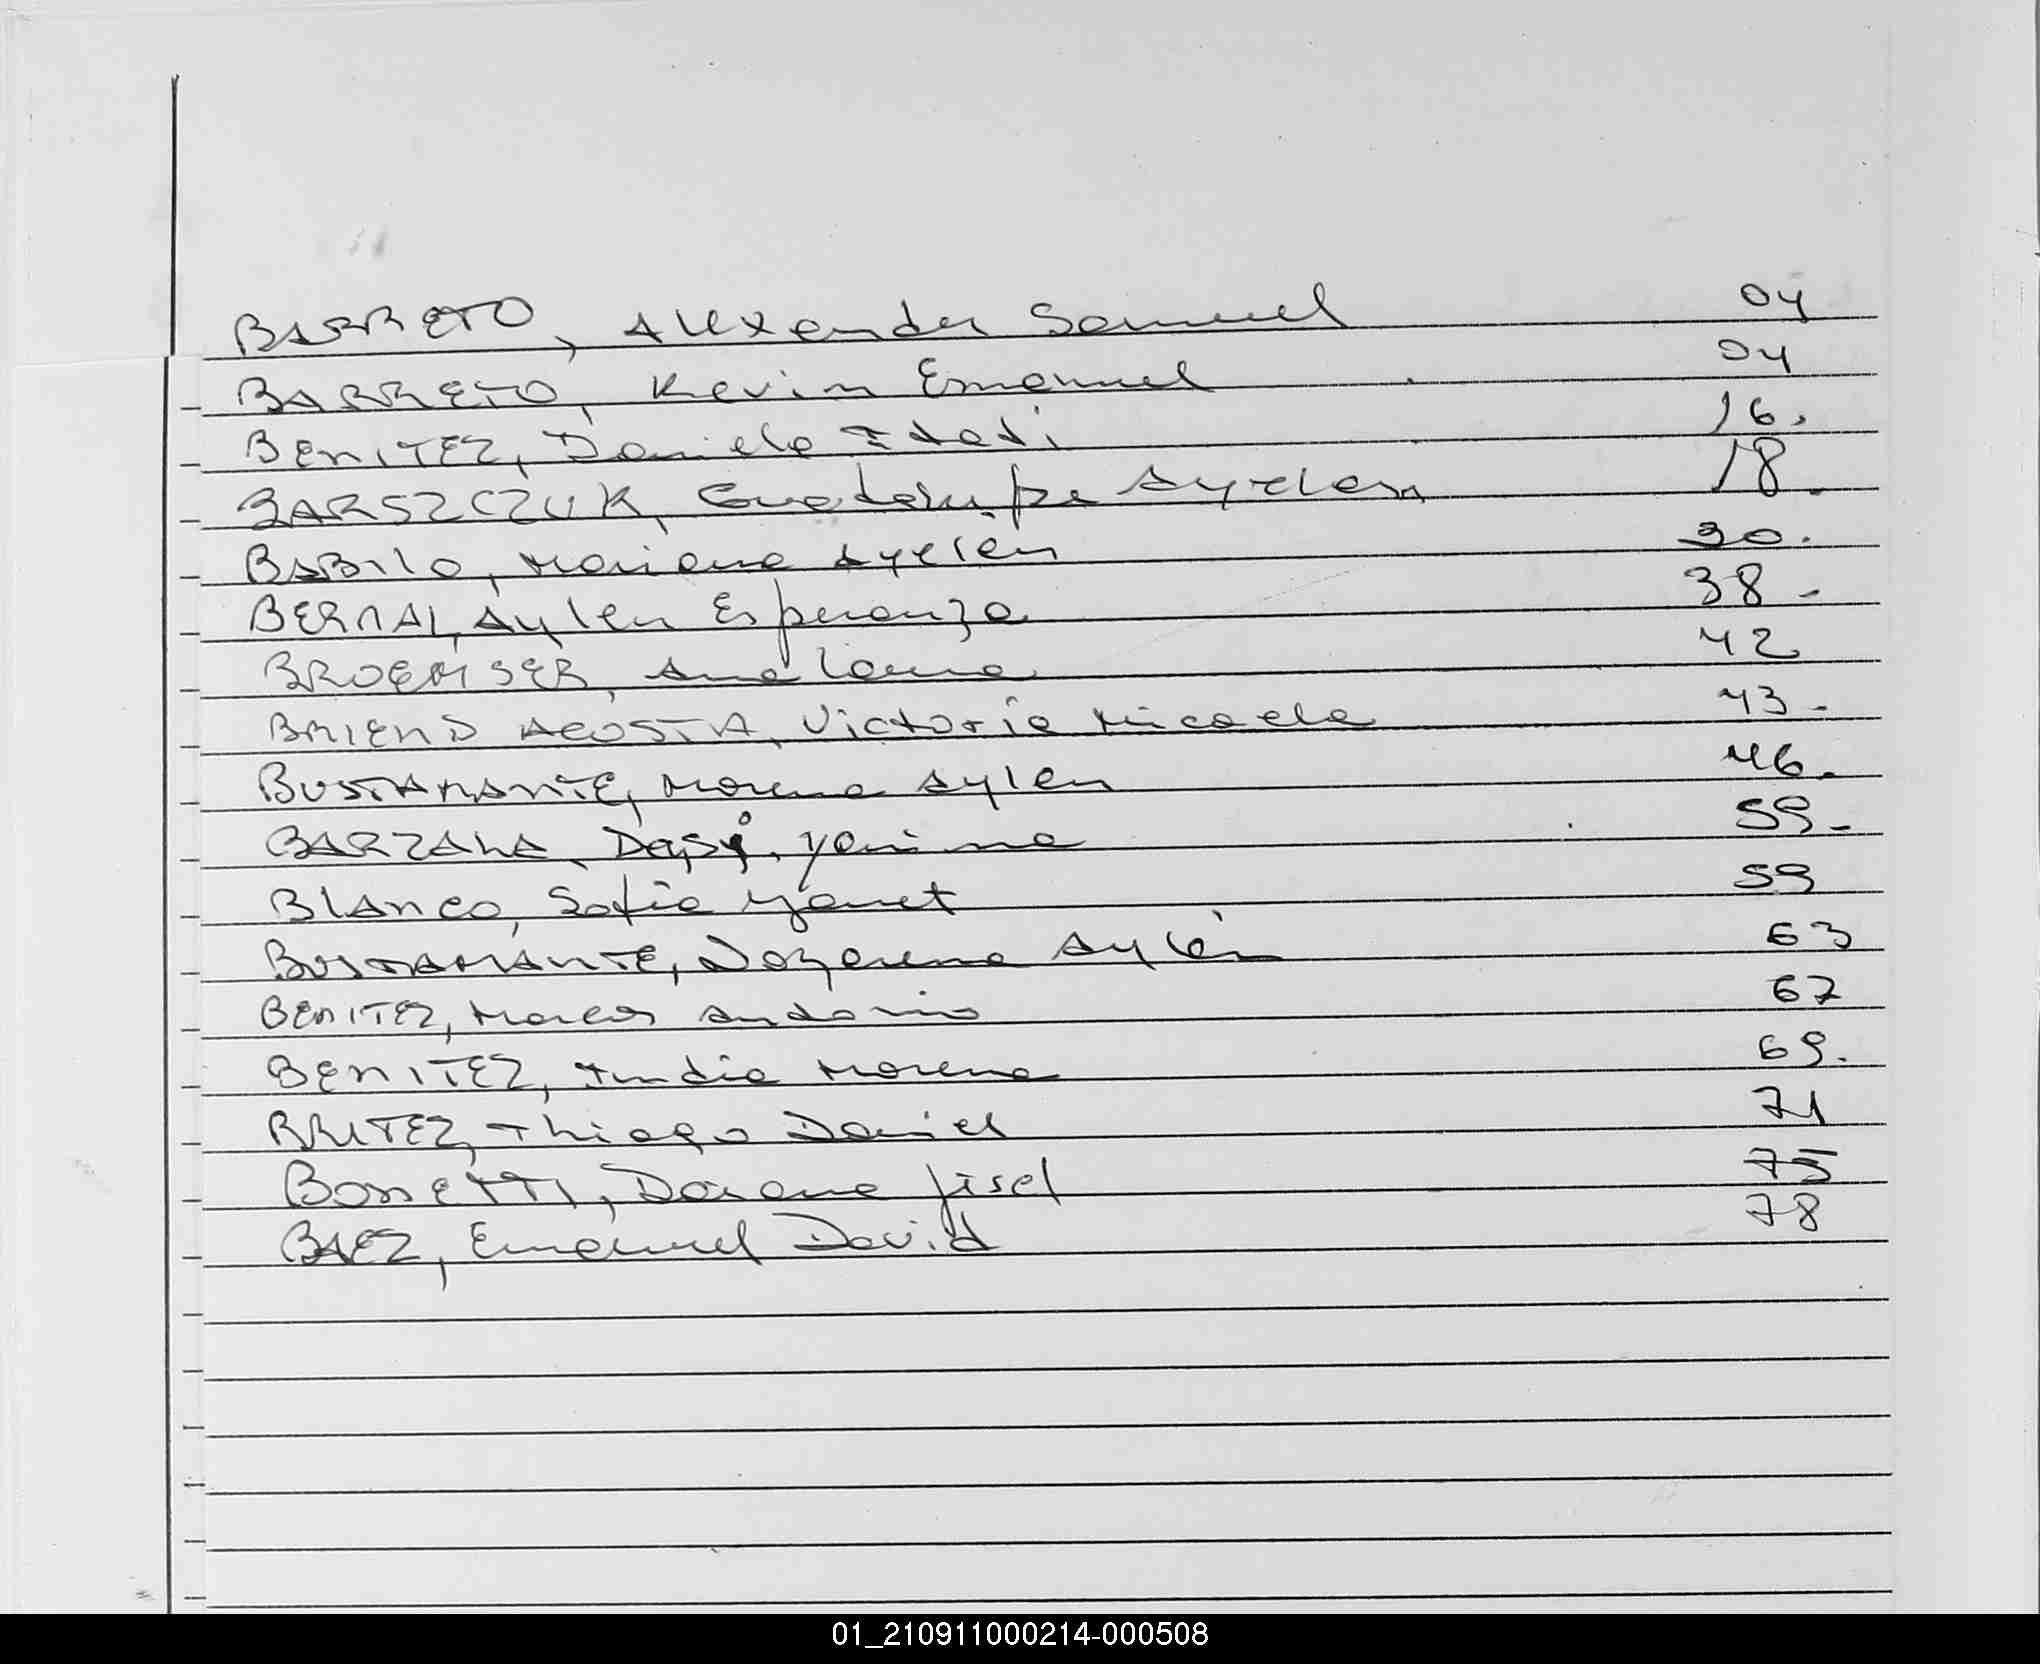 BARRETO, Alexander Samuel 04
BARRETO, Kevin Emanuel 04
BENITEZ, Daniela Itati 16.
BARSZCZUK, Guadalupe Ayelen 18.
BABILO, Mariana Ayelén 30.
BERNAL, Aylen Esperanza 38-
BROEMSER, Ana Laura 42
BRIEND ACOSTA, Victoria Micaela 43-
BUSTAMANTE, Morena Aylen 46.
BARZALA, Deysi, Yanina 59-
BLANCO, Sofia Yanet 59
BUSTAMANTE, Nazarena Aylén 63
BENITEZ, Marcos Antonio 67
BENITEZ, India Morena 69.
BRITEZ, Thiago Daniel 71
BONETTI, Daiana Jisel 75
BAEZ, Emanuel David 78
01_210911000214-000508